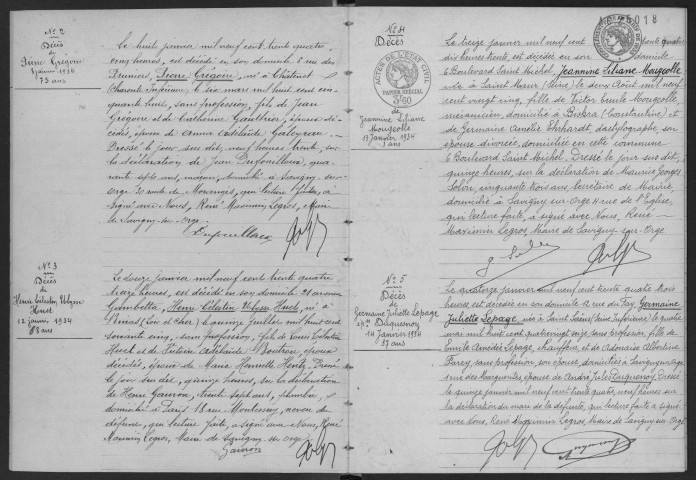 N° 2
Décès
de
Pierre Grégoire
8 janvier 1934
73 ans
Le huit janvier mil neuf cent trente quatre
cinq heures, est décédé en son domicile 6 rue des
Pierre Grégoire, né à
Charente Inférieure, le six mars mil huit cent
huit, sans profession, fils de Jean
Grégoire et de Catherine Gauthier, époux
décédés, époux de Anna Adélaïde
Dressé le jour sus dit, neuf heures trente, sur
la déclaration de Jean Dufouilloux, qua-
rante sept ans, domicilié à Savigny-sur-
Orge 30 route de Morangis, que lecture faite, a
signé avec Nous, René Maximin Legros, Maire
de Savigny-sur-Orge.
N° 3
Décès
de
Henri Célestin Ulysse
Huet
12 janvier 1934
68 ans
Le douze janvier mil neuf cent trente quatre
treize heures, est décédé en son domicile 21 avenue
Gambetta, Henri Célestin Ulysse Huet, né à
(Loir et Cher) le quinze juillet mil huit cent
soixante cinq, sans profession, fils de Louis
Huet et de Adélaïde Boutron, époux
décédés, époux de Marie Henriette Hentz. Dressé
le jour sus dit, quinze heures, sur la déclaration
de Henri Gaivon, trente sept ans, plombier,
domicilié à Paris 18 rue Montessuy, neveu du
défunt, que lecture faite, a signé avec Nous, René
Maximin Legros, Maire de Savigny-sur-Orge.
Gaivon
018
N° 4
Décès
ACTES DE L'ÉTAT CIVIL
PAPIER SPÉCIAL
3f60
de
Jeannine Liliane
Mougeolle
13 Janvier 1934
8 ans
Le treize janvier mil neuf cent trente quatre
dix heures trente, est décédée en son domicile
6 Boulevard Saint Michel, Jeannine Liliane Mougeolle
née à Saint Maur (Seine) le deux Août mil neuf
cent vingt cinq, fille de Victor Emile Mougeolle,
mécanicien domicilié à Biskra (Constantine) et
de Germaine Amélie Ehrhardt, dactylographe, son
épouse divorcée, domiciliée en cette commune
6 Boulevard Saint Michel. Dressé le jour sus dit,
quinze heures, sur la déclaration de Maurice Georges
Solon, cinquante trois ans, Secrétaire de Mairie,
domicilié à Savigny sur Orge 4 rue de l'Eglise,
qui lecture faite, a signé avec Nous, René
Maximin Legros, Maire de Savigny-sur-Orge
N° 5
Décès
de
Germaine Juliette Lepage
épse Duquesnoy
14 Janvier 1934
37 ans
Le quatorze janvier mil neuf cent trente quatre dix
heures est décédée en son domicile 12 rue du Fay, Germaine
Juliette Lepage, née à Saint Saëns (Seine Inférieure) le quatre
mai mil huit cent quatre vingt seize sans profession, fille de
Emile Amédée Lepage, chauffeur, et de Albertine
Farcy, sans profession, son épouse, domiciliés à Savigny
rue des Marguerites, épouse de André Jules Duquesnoy. Dressé
le quinze janvier mil neuf cent trente quatre, neuf heures sur
la déclaration du mari de la défunte, qui lecture faite a signé
avec Nous, René Maximin Legros, Maire de Savigny sur Orge